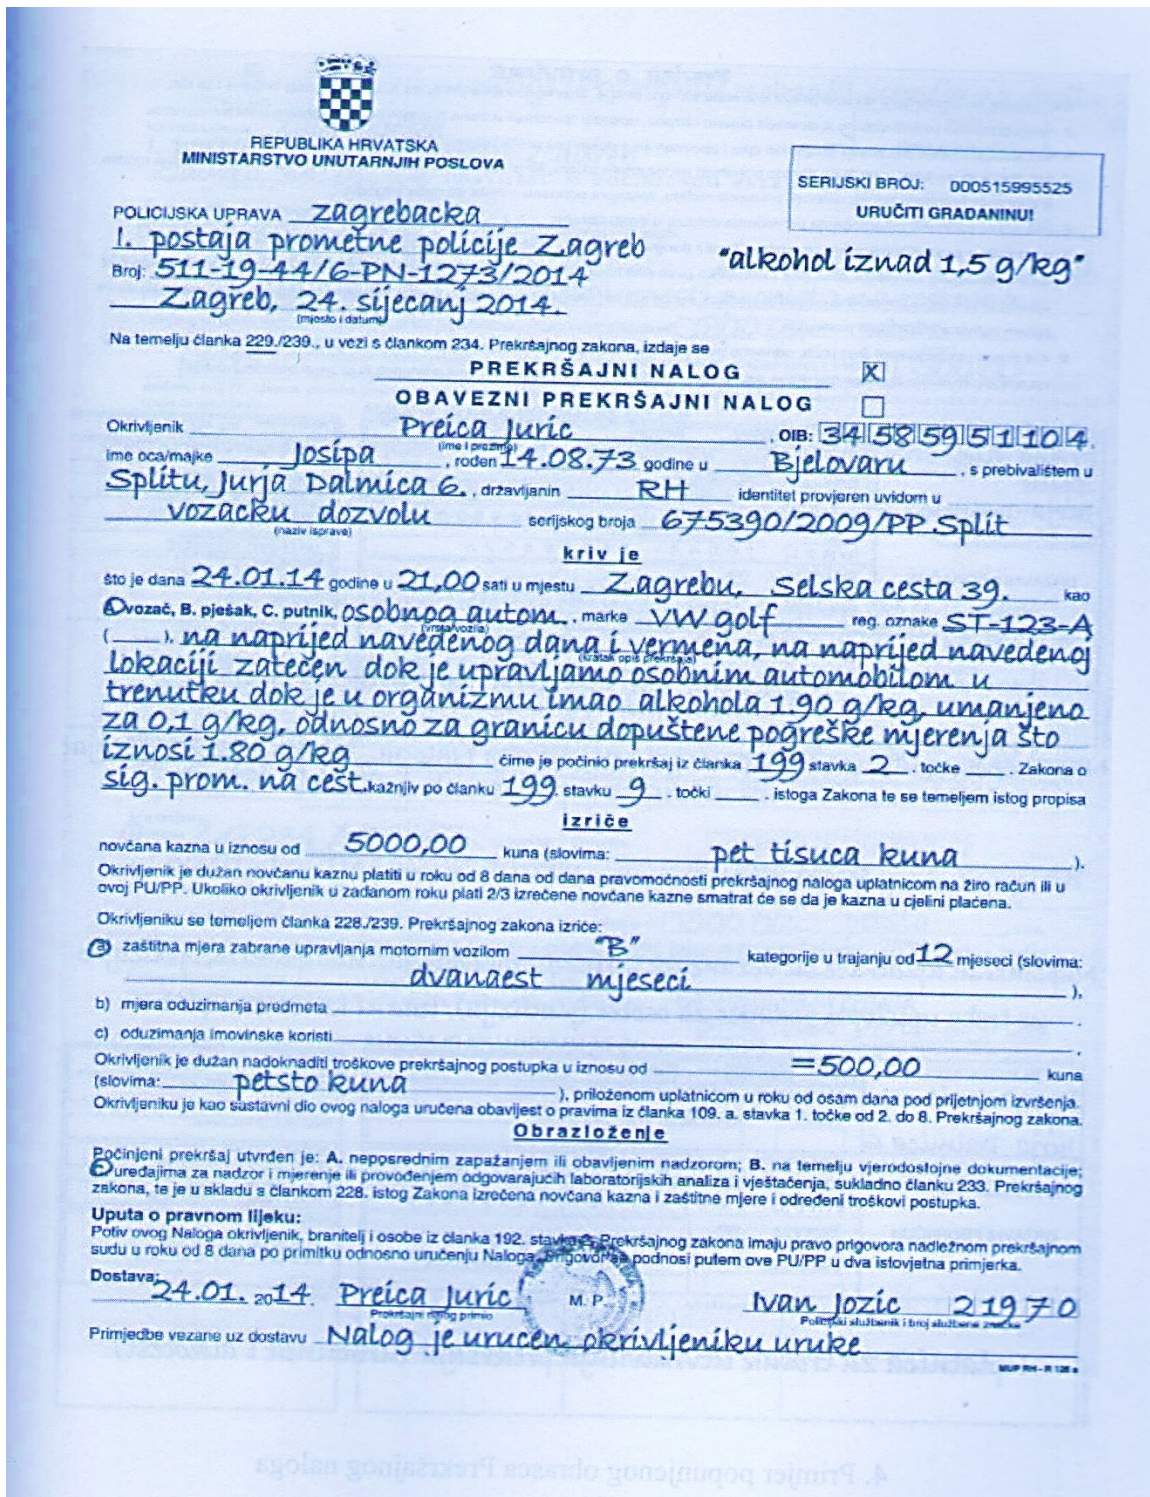 REPUBLIKA HRVATSKA
MINISTARSTVO UNUTARNJIH POSLOVA
SERIJSKI BROJ: 000515995525
URUČITI GRAĐANINU!
POLICIJSKA UPRAVA zagrebacka
1. postaja prometne policije Zagreb
"alkohol iznad 1,5 g/kg"
Broj: 511-19-44/6-PN-1273/2014
Zagreb, 24. sijecanj 2014.
(mjesto i datum)
Na temelju članka 229./239., u vezi s člankom 234. Prekršajnog zakona, izdaje se
PREKRŠAJNI NALOG X
OBAVEZNI PREKRŠAJNI NALOG
Okrivljenik Preica Juric, OIB: 34585951104.
(ime i prezime)
ime oca/majke Josipa, rođen 14.08.73 godine u Bjelovaru, s prebivalištem u
Splitu, Jurja Dalmica 6., državljanin RH identitet provjeren uvidom u
vozacku dozvolu serijskog broja 675390/2009/PP Split
(naziv isprave)
kriv je
što je dana 24.01.14 godine u 21,00 sati u mjestu Zagrebu, Selska cesta 39. kao
A vozač, B. pješak, C. putnik, osobnog autom., marke VW golf reg. oznake ST-123-A
(vrsta vozila)
(____), na naprijed navedenog dana i vermena, na naprijed navedenoj
(kratak opis prekršaja)
lokaciji zatečen dok je upravljamo osobnim automobilom u
trenutku dok je u organizmu imao alkohola 1.90 g/kg, umanjeno
za 0,1 g/kg, odnosno za granicu dopuštene pogreške mjerenja što
iznosi 1.80 g/kg čime je počinio prekršaj iz članka 199 stavka 2. točke ____. Zakona o
sig. prom. na cest. kažnjiv po članku 199. stavku 9. točki ____. istoga Zakona te se temeljem istog propisa
izriče
novčana kazna u iznosu od 5000,00 kuna (slovima: pet tisuca kuna).
Okrivljenik je dužan novčanu kaznu platiti u roku od 8 dana od dana pravomoćnosti prekršajnog naloga uplatnicom na žiro račun ili u
ovoj PU/PP. Ukoliko okrivljenik u zadanom roku plati 2/3 izrečene novčane kazne smatrat će se da je kazna u cjelini plaćena.
Okrivljeniku se temeljem članka 228./239. Prekršajnog zakona izriče:
a) zaštitna mjera zabrane upravljanja motornim vozilom "B" kategorije u trajanju od 12 mjeseci (slovima:
dvanaest mjeseci),
b) mjera oduzimanja predmeta
c) oduzimanja imovinske koristi
Okrivljenik je dužan nadoknaditi troškove prekršajnog postupka u iznosu od =500,00 kuna
(slovima: petsto kuna), priloženom uplatnicom u roku od osam dana pod prijetnjom izvršenja.
Okrivljeniku je kao sastavni dio ovog naloga uručena obavijest o pravima iz članka 109. a. stavka 1. točke od 2. do 8. Prekršajnog zakona.
Obrazloženje
Počinjeni prekršaj utvrđen je: A. neposrednim zapažanjem ili obavljenim nadzorom; B. na temelju vjerodostojne dokumentacije;
C uređajima za nadzor i mjerenje ili provođenjem odgovarajućih laboratorijskih analiza i vještačenja, sukladno članku 233. Prekršajnog
zakona, te je u skladu s člankom 228. istog Zakona izrečena novčana kazna i zaštitne mjere i određeni troškovi postupka.
Uputa o pravnom lijeku:
Potiv ovog Naloga okrivljenik, branitelj i osobe iz članka 192. stavka 2. Prekršajnog zakona imaju pravo prigovora nadležnom prekršajnom
sudu u roku od 8 dana po primitku odnosno uručenju Naloga. Prigovor se podnosi putem ove PU/PP u dva istovjetna primjerka.
Dostava: 24.01. 2014. Preica Juric M. P. Ivan Jozic 21970
Prekršajni nalog primio Policijski službenik i broj službene značke
Primjedbe vezane uz dostavu Nalog je urucen okrivljeniku uruke
MUP RH - R 126 a
4. Primjer popunjenog obrasca Prekršajnog naloga